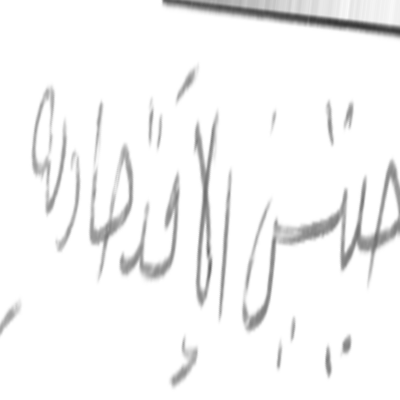 حيتين الإقتصاديه